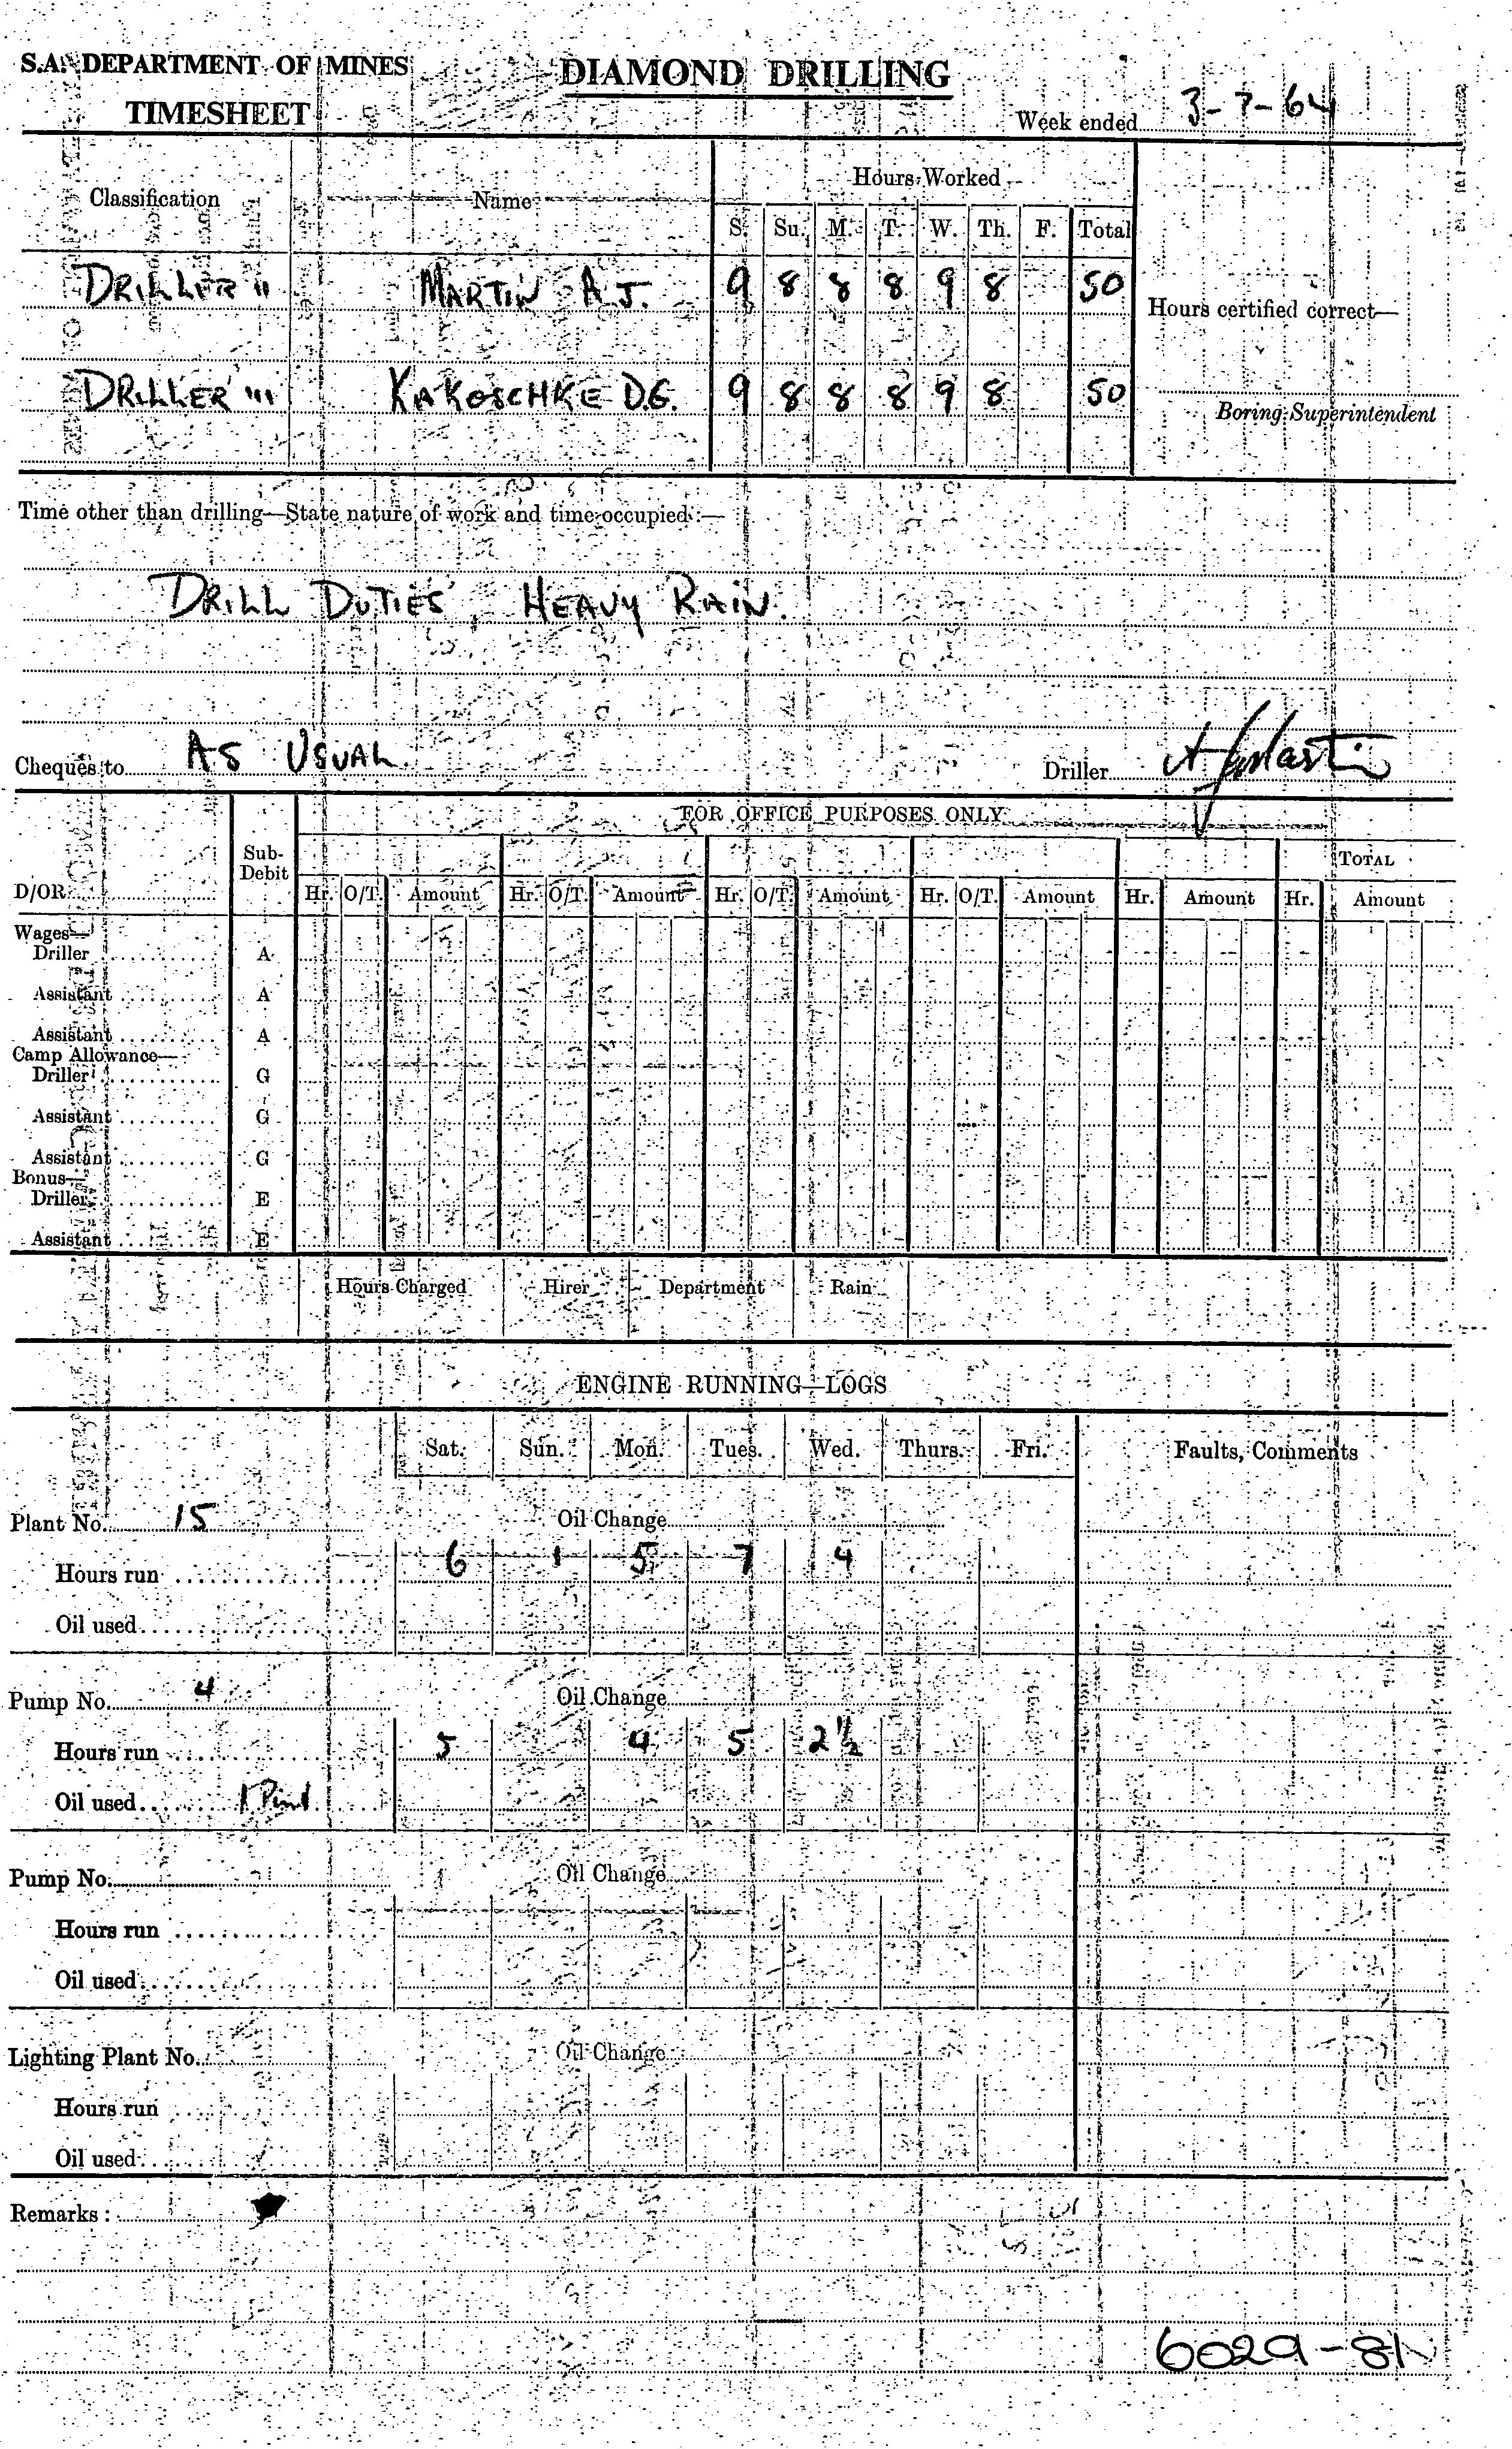 S.A. DEPARTMENT OF MINES
DIAMOND DRILLING
TIMESHEET
Week ended 3-7-64
Classification Name Hours Worked
S. Su. M. T. W. Th. F. Total
DRILLER II MARTIN A.J. 9 8 8 8 9 8 50
Hours certified correct—
DRILLER III KAKOSCHKE D.G. 9 8 8 8 9 8 50
Boring Superintendent
Time other than drilling—State nature of work and time occupied:—
DRILL DUTIES, HEAVY RAIN.
Cheques to AS USUAL Driller A J Martin
FOR OFFICE PURPOSES ONLY
Sub-Debit TOTAL
D/OR Hr. O/T. Amount Hr. O/T. Amount Hr. O/T. Amount Hr. O/T. Amount Hr. Amount Hr. Amount
Wages—
Driller A
Assistant A
Assistant A
Camp Allowance—
Driller G
Assistant G
Assistant G
Bonus—
Driller E
Assistant E
Hours Charged Hirer Department Rain
ENGINE RUNNING—LOGS
Sat. Sun. Mon. Tues. Wed. Thurs. Fri. Faults, Comments
Plant No. 15 Oil Change
Hours run 6 1 5 7 4
Oil used
Pump No. 4 Oil Change
Hours run 5 4 5 2½
Oil used 1 Pint
Pump No. Oil Change
Hours run
Oil used
Lighting Plant No. Oil Change
Hours run
Oil used
Remarks:
6029-81